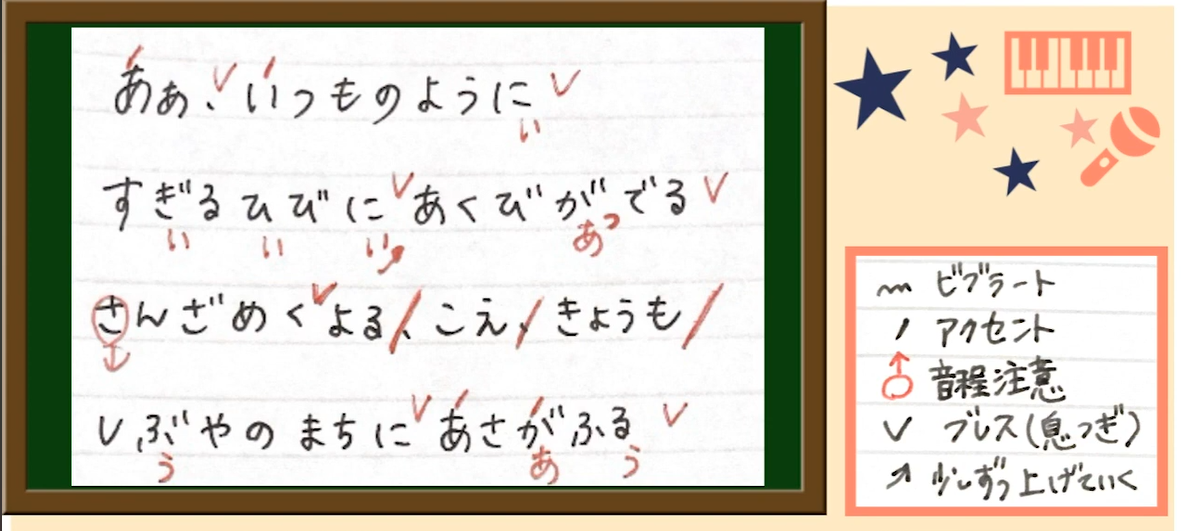 ああ、いつものように
い
すぎるひびに あくびがでる
い い い あっ
さんざめくよる、こえ、きょうも
しぶやのまちに あさがふる
う あ う
ビブラート
アクセント
音程注意
ブレス(息つぎ)
少しずつ上げていく